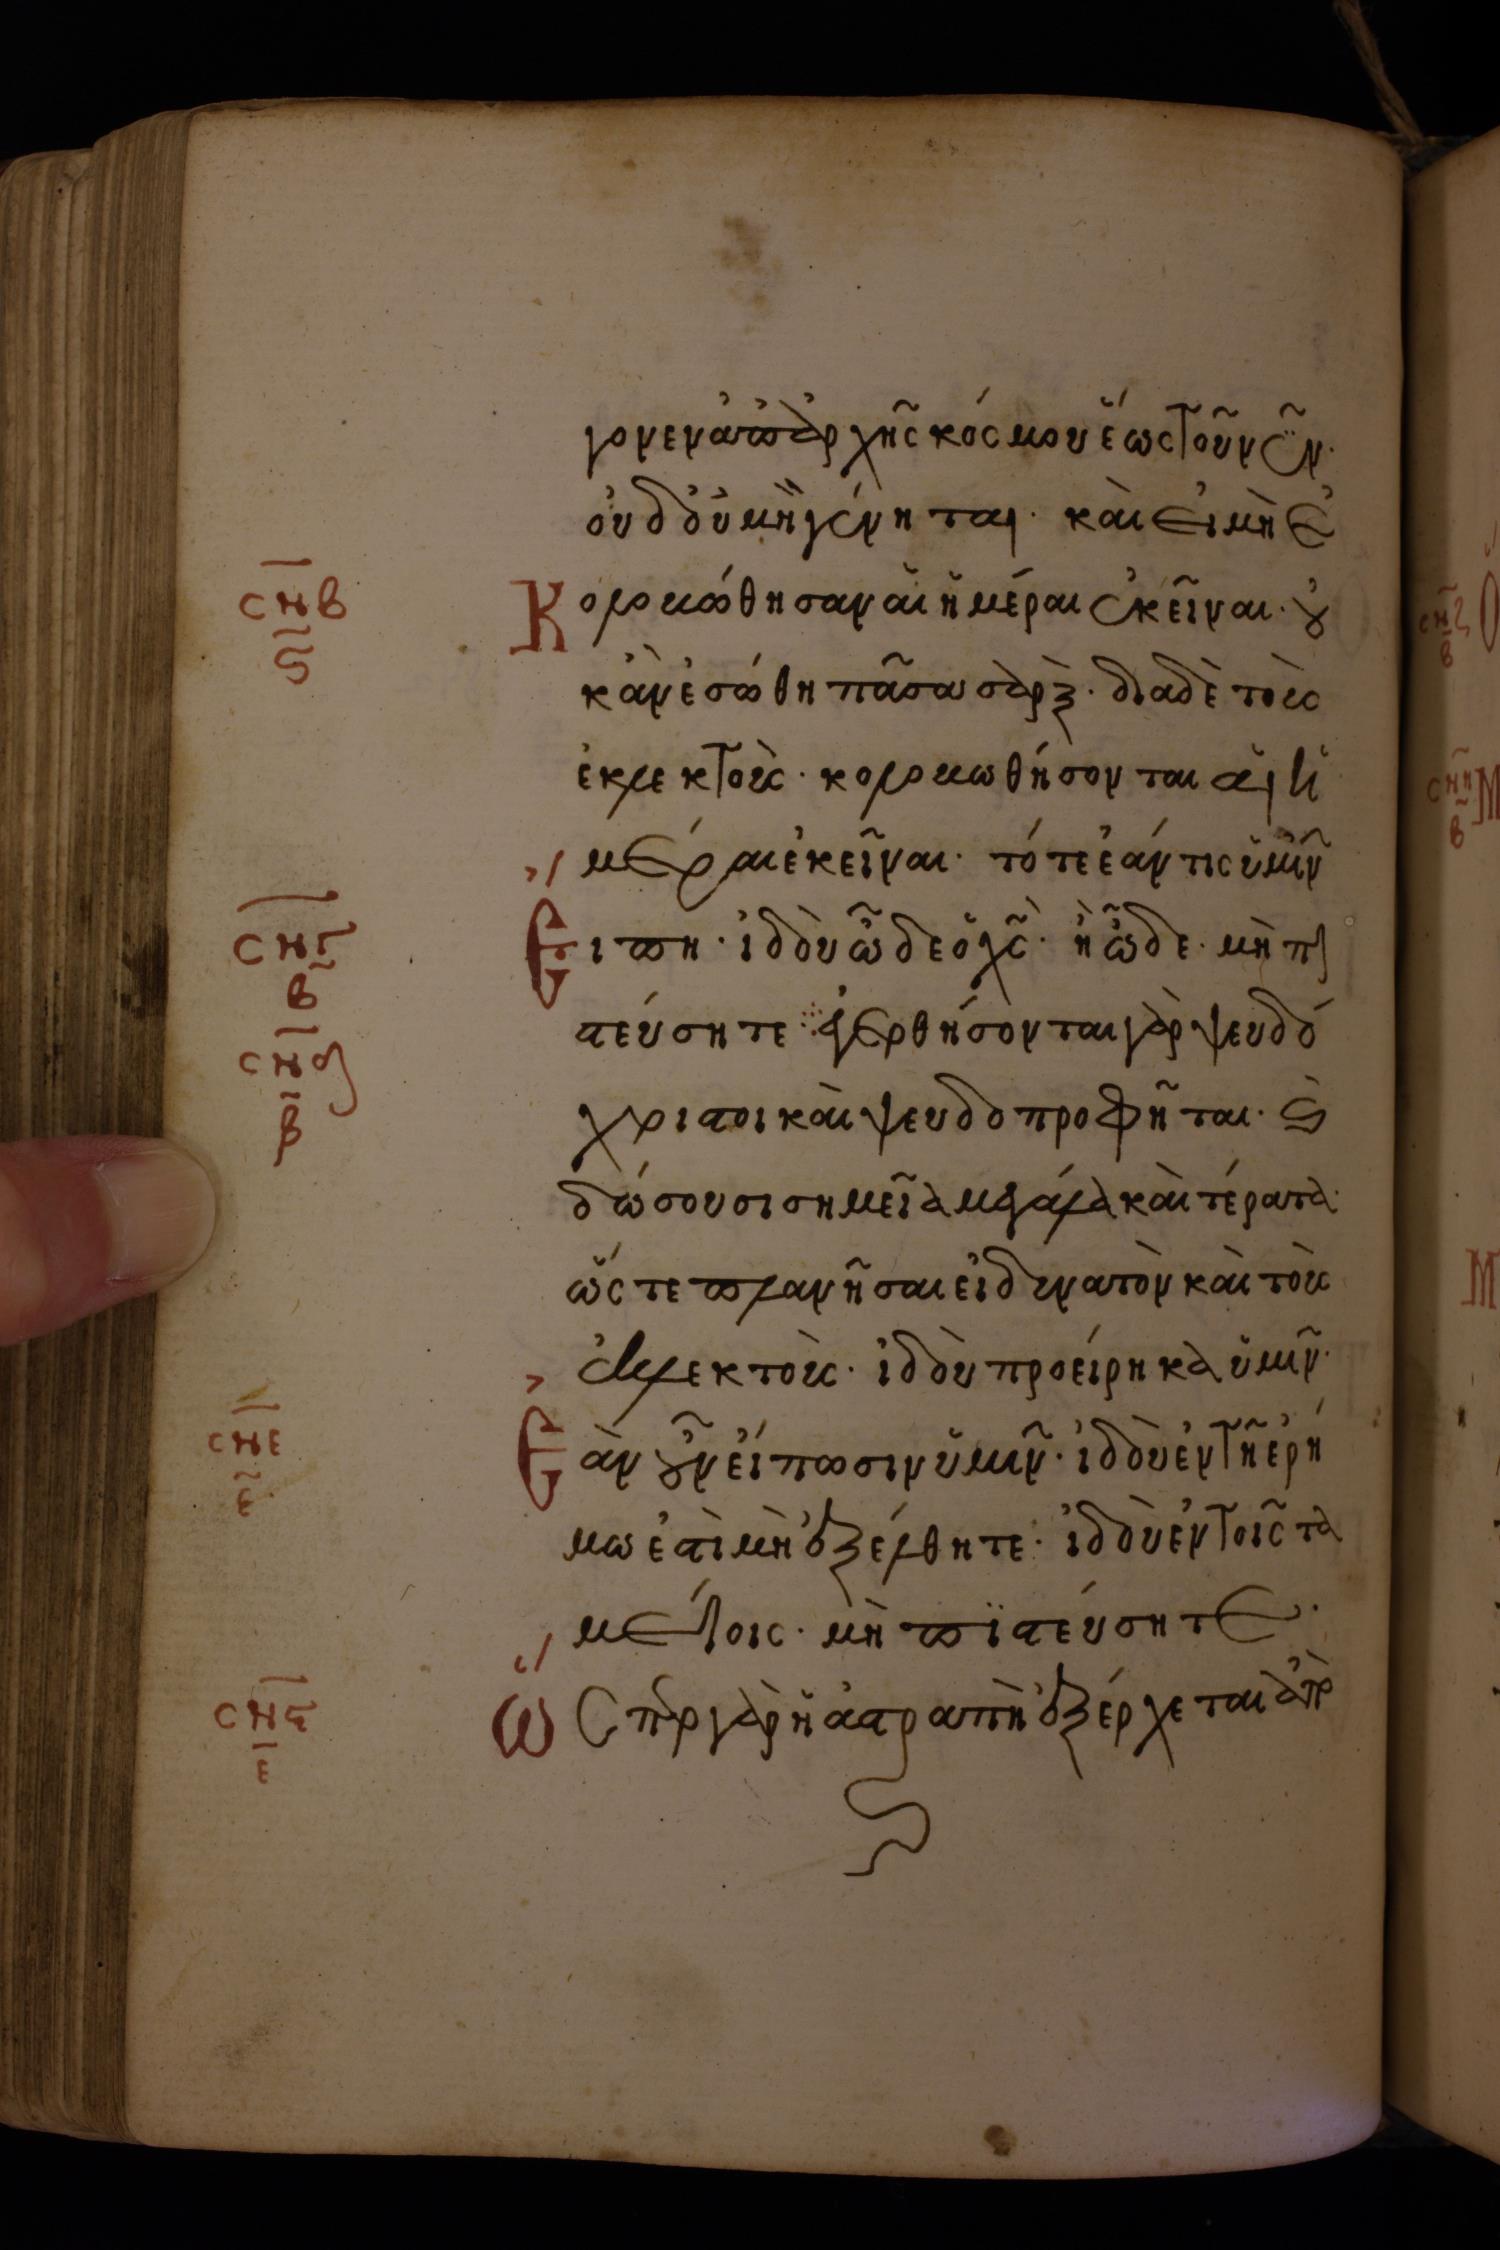 γονεν ἀπ ἀρχῆς κόσμου ἕως τοῦ νῦν·
οὐδ οὐ μὴ γένηται· καὶ εἰ μὴ ἐ
σμβ
ς
Κολοβώθησαν αἱ ἡμέραι ἐκεῖναι· οὐ
κἂν ἐσώθη πᾶσα σὰρξ· διὰ δὲ τοὺς
ἐκλεκτοὺς· κολοβωθήσονται αἱ ἡ
μέραι ἐκεῖναι· τότε ἐάν τις ὑμῖν
σμγ
β
Εἴπη· ἰδοὺ ὧδε ὁ χς· ἢ ὧδε· μὴ πι
στεύσητε· ἐγερθήσονται γὰρ ψευδό
σμδ
β
χριστοι καὶ ψευδοπροφῆται· καὶ
δώσουσι σημεῖα μεγάλα καὶ τέρατα·
ὥστε πλανῆσαι εἰ δυνατὸν καὶ τοὺς
ἐκλεκτοὺς· ἰδοὺ προείρηκα ὑμῖν·
σμε
ε
Ἐὰν οὖν εἴπωσιν ὑμῖν· ἰδοὺ ἐν τῆ ἐρή
μω ἐστὶ μὴ ἐξέλθητε· ἰδοὺ ἐν τοῖς τα
μείοις· μὴ πϊστεύσητε·
σμς
ε
Ὥσπερ γὰρ ἡ ἀστραπὴ ἐξέρχεται ἀπὸ